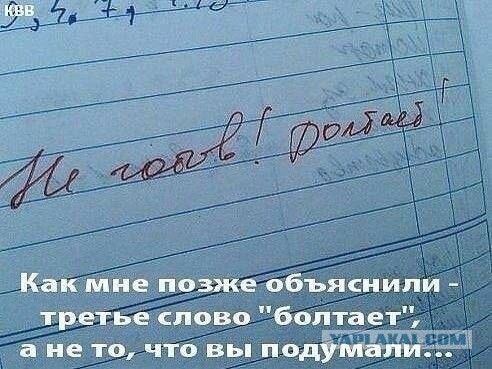 КВВ
9, 4. 7,
Не готов! Болтает!
Как мне позже объяснили -
третье слово "болтает",
а не то, что вы подумали...
YAPLAKAL.COM